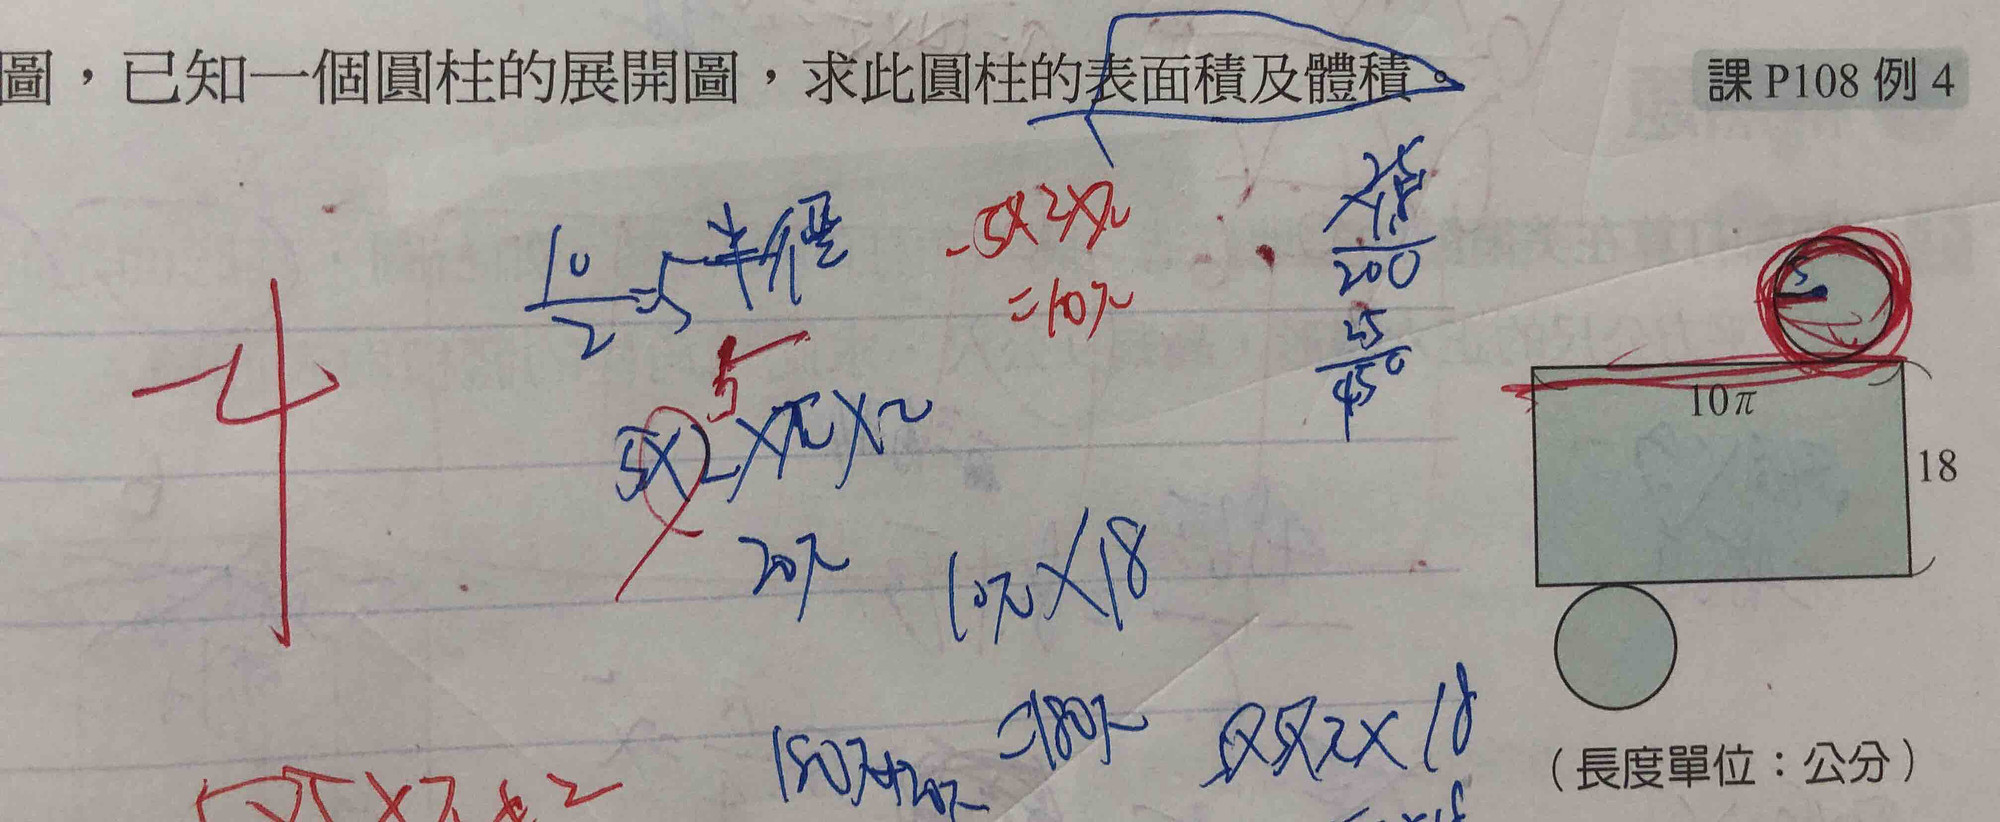 圖，已知一個圓柱的展開圖，求此圓柱的表面積及體積。
課 P108 例 4
10/2=5 半徑
5×2×π
=10π
25
×18
200
25
450
5
5×2×π×2
20π
10π×18
=180π
180π+20π
5×5×π×18
5
10π
18
（長度單位：公分）